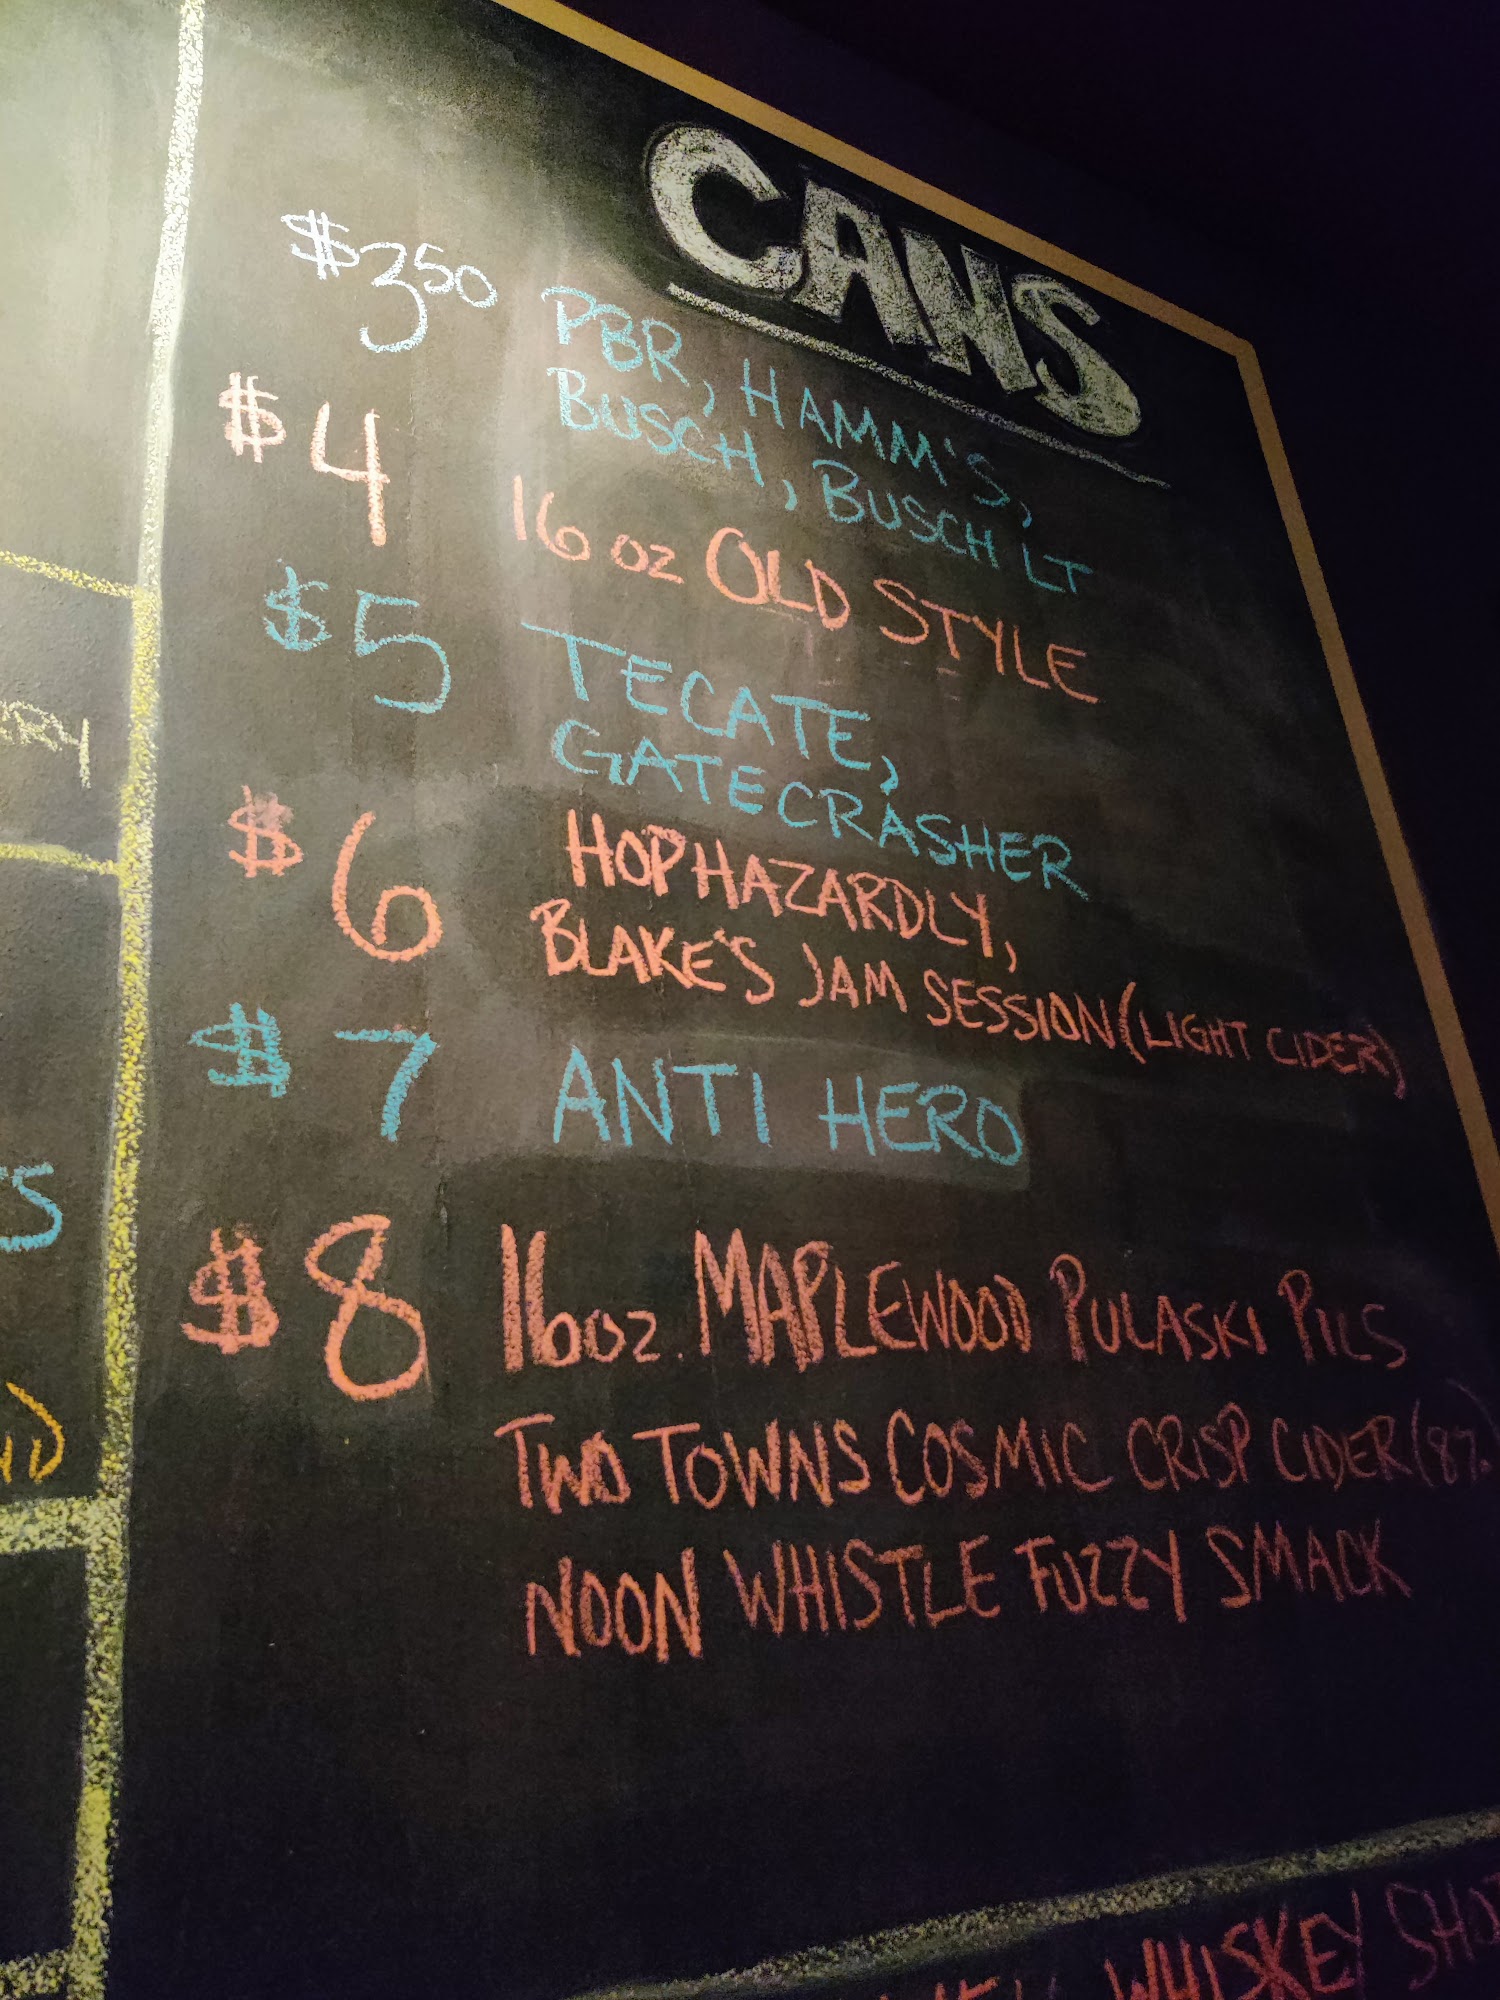 CANS
$3.50 PBR, HAMM'S,
BUSCH, BUSCH LT
$4 16 oz OLD STYLE
$5 TECATE,
GATECRASHER
$6 HOPHAZARDLY,
BLAKE'S JAM SESSION (LIGHT CIDER)
$7 ANTI HERO
$8 16oz. MAPLEWOOD PULASKI PILS
TWO TOWNS COSMIC CRISP CIDER (8%)
NOON WHISTLE FUZZY SMACK
WHISKEY